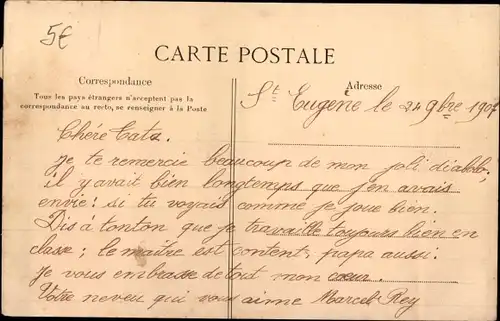 5€
CARTE POSTALE
Correspondance
Tous les pays étrangers n'acceptent pas la
correspondance au recto, se renseigner à la Poste
Adresse
St Eugène le 24 9bre 1907
Chère Tata.
Je te remercie beaucoup de mon joli diabolo;
il y avait bien longtemps que j'en avais
envie; si tu voyais comme je joue bien.
Dis à tonton que je travaille toujours bien en
classe; le maître est content, papa aussi.
Je vous embrasse de tout mon cœur.
Votre neveu qui vous aime Marcel Rey